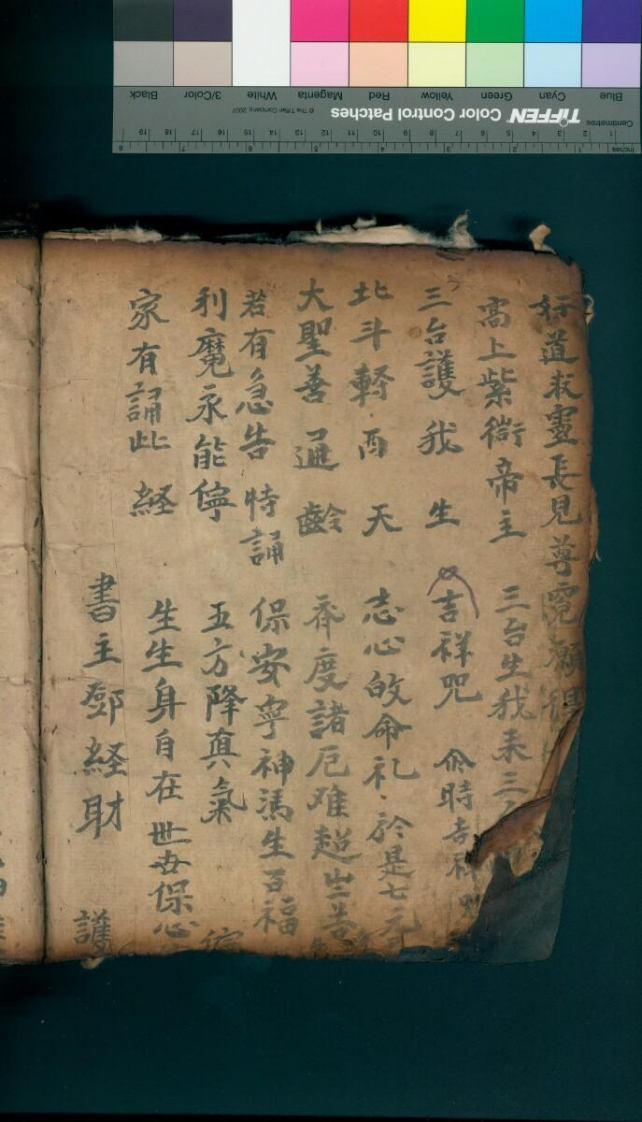 好道求靈長見尊
高上紫衙帝主 三台生我来三
三台護我生 吉祥咒 尒時吉祥
北斗輊酉天 志心皈命礼 於是七元
大聖善通齡 齐度諸厄难超出苦
若有急告 特誦 保安寧神馮生百福
利魔永能儜 五方降真氣
家有誦此経 生生身自在 世世保心
書主鄧経財 護
Inches
Centimetres
TIFFEN Color Control Patches
© The Tiffen Company, 2007
Blue Cyan Green Yellow Red Magenta White 3/Color Black